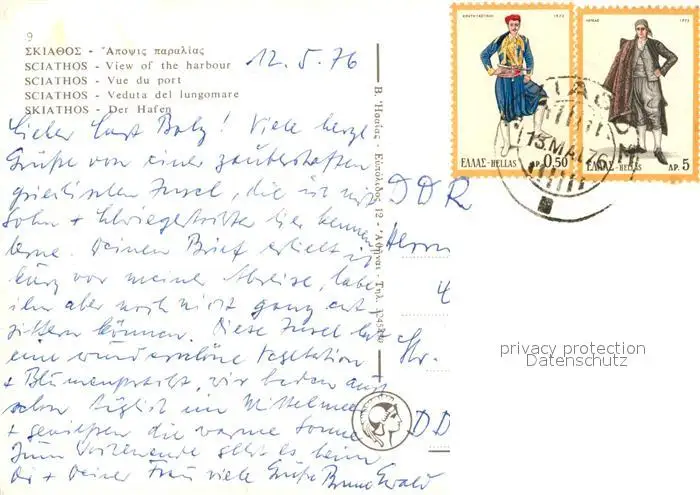 9
ΣΚΙΑΘΟΣ - Ἄποψις παραλίας
SCIATHOS - View of the harbour
SCIATHOS - Vue du port
SCIATHOS - Veduta del lungomare
SKIATHOS - Der Hafen
12.5.76
Lieber Curt Boly! Viele herzl.
Grüße von einer zauberhaften
griechischen Insel, die ich mit
Sohn + Schwiegertochter hier kennen
lerne. Deinen Brief erhielt ich
kurz vor meiner Abreise, habe
ihn aber noch nicht ganz ent
ziffern können. Diese Insel hat
eine wunderschöne Vegetation
+ Blumenpracht, wir baden auch
schon täglich im Mittelmeer
+ genießen die warme Sonne
Zum Wochenende geht es heim
Dir + Deiner Frau viele Grüße Bruno Ewald
Εὐπόλιδος 12 - Ἀθῆναι - Τηλ.
DDR
Herrn
4
Str.
DD
1973
1972
ΕΛΛΑΣ-HELLAS ΔΡ. 0,50
ΕΛΛΑΣ-HELLAS ΔΡ. 5
13.MAI.76
privacy protection
Datenschutz